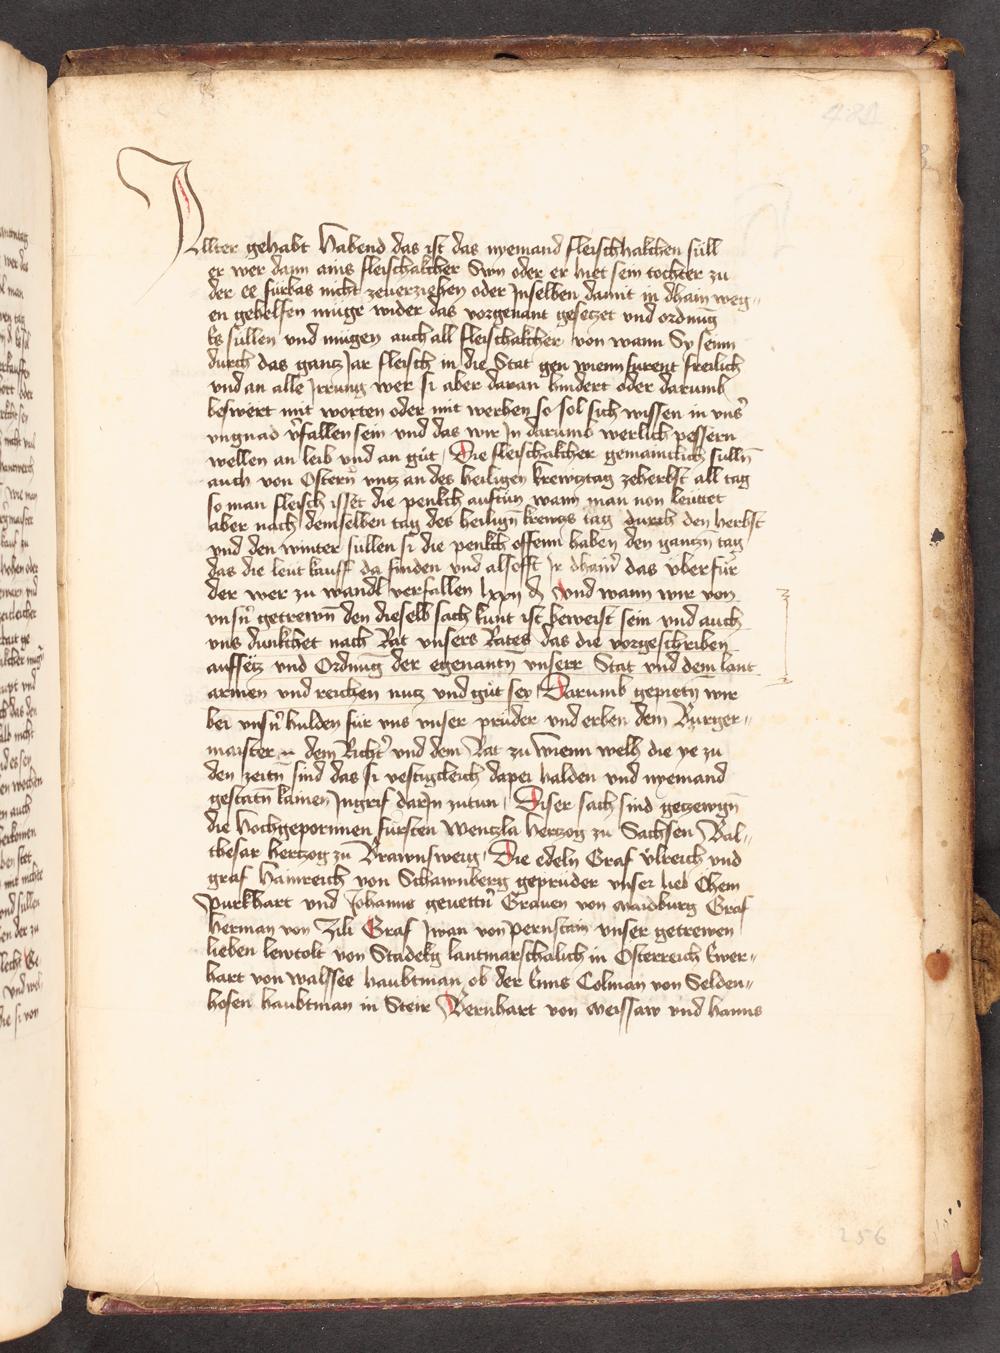 481
Allter gehabt habend das ist das nyemand fleischhakchen süll
er wer dann ains fleischakcher Sun oder er het sein tochter zu
der ee fürbas nicht zeuerziehen oder Inselben damit in dhain weg„
en gehelfen müge wider das vorgenant gesetzet vnd ordnūg
Es süllen vnd mügen auch all fleischakcher von wann Sy seinn
durch das gantz Jar fleisch in die Stat gen wienn fürent freilich
vnd an alle Irrung wer si aber daran hindert oder darumb
beswert mit worten oder mit werken so sol sich wissen in vns̄
vngnad v̄fallen sein vnd das wir In darumb werlich pessern
wellen an leib vnd an güt Die fleischakcher gemainklich sulln̄
auch von Ostern vntz an des heiligen krewtztag zeherbst all tag
so man fleisch isset die penkch auftün wann man non leuttet
aber nach demselben tag des heilign̄ krewtz tag durch den herbst
vnd den winter süllen si die penkch offenn haben den gantzn tag
das die leüt kauff da finden vnd als offt Ir dhain̄ das vberfür
der wer zu wandl verfallen lxxij ₰ Vnd wann wir von
vnsn̄ getrewn̄ den dieselb sach kunt ist beweist sein vnd auch
vns dunkchet nach Rat vnsers Rates das die vorgeschriben
aufsetz vnd Ordnūg der egenantn̄ vnserr Stat vnd dem lant
armen vnd reichen nutz vnd güt sey Darumb gepietn̄ wir
bei vnsn̄ hulden für vns vnser prüder vnd erben dem Burger„
maister dem Richt̄ vnd dem Rat zu wienn welh die ye zu
den zeitn̄ sind das si vestigcleich dapei halden vnd nyemand
gestatn̄ kainen Ingrif darIn zutun Diser sach sind getzewgn̄
die hochgeporinnen fürsten wentzla hertzog zu Sachsen Bal„
thesar hertzog zu Brawnsweig Die edeln Graf vlreich vnd
graf hainreich von Schawnberg geprüder vnser lieb Ohem
purkhart vnd Johanns geuettn̄ Grauen von Maidburg Graf
herman von Zili Graf Jwan von pernstain vnser getrewen
lieben lewtolt von Stadekg lantmarschalich in Osterreich Ewer„
hart von walssee haubtman ob der Enns Colman von Selden„
hofen haubtman in Steir Bernhart von Meissaw vnd hanns
256